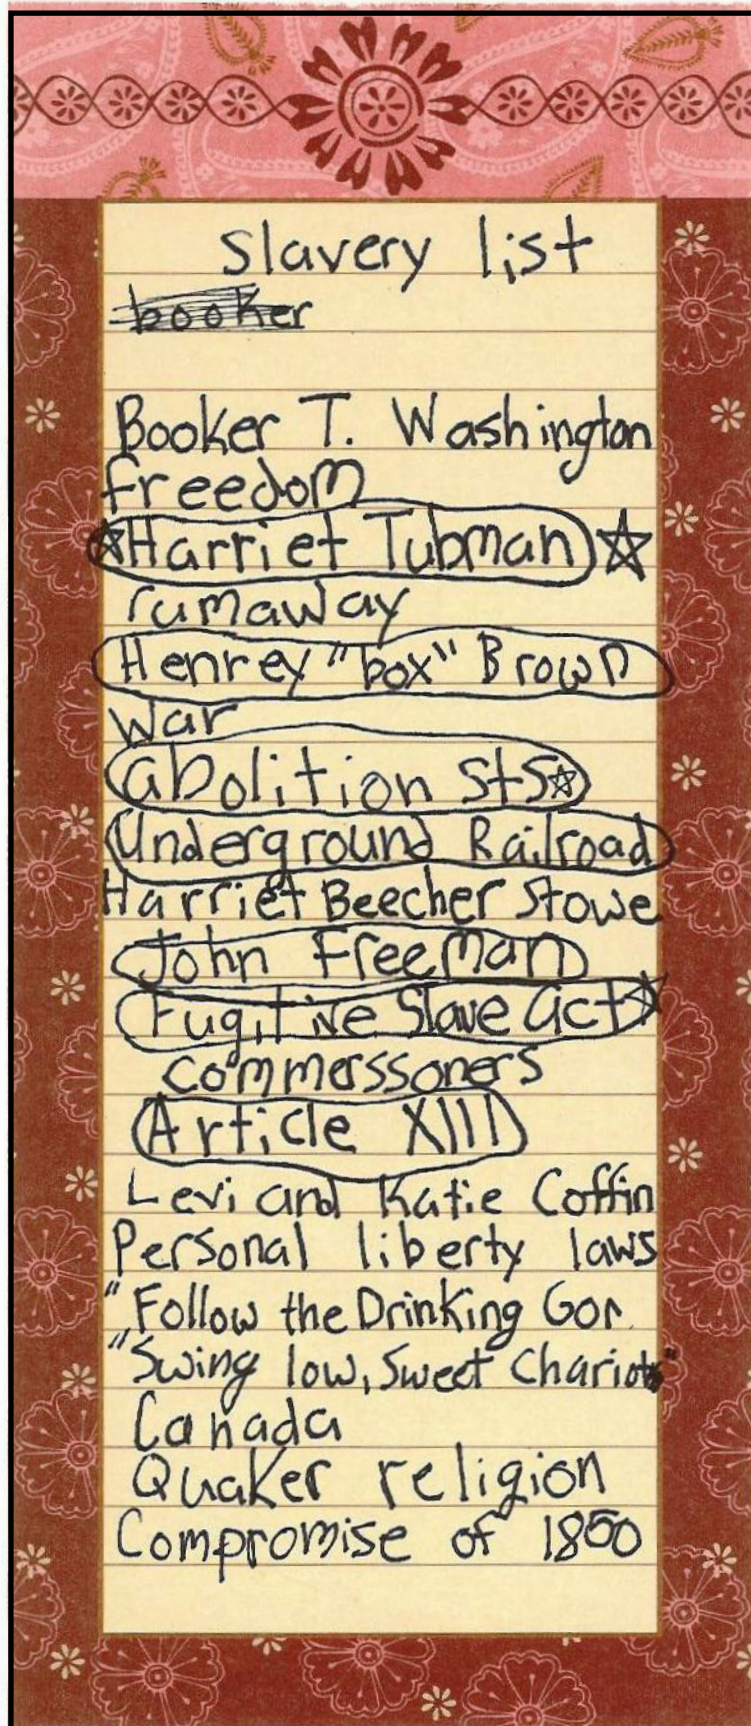 slavery list
booker
Booker T. Washington
freedom
Harriet Tubman
runaway
Henrey "box" Brown
war
abolition sts
Underground Railroad
Harriet Beecher Stowe
John Freeman
Fugitive Slave act
commerssoners
Article XIII
Levi and Katie Coffin
Personal liberty laws
"Follow the Drinking Gor
"Swing low, Sweet Chariot"
Canada
Quaker religion
Compromise of 1850